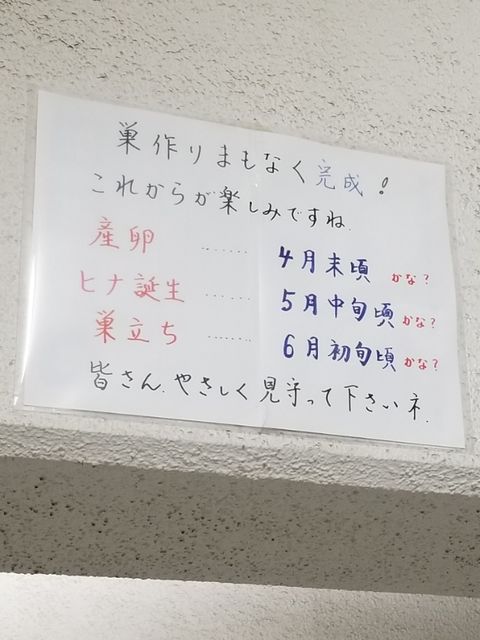 巣作りまもなく完成!
これからが楽しみですね.
産卵 ...... 4月末頃 かな?
ヒナ誕生 ...... 5月中旬頃 かな?
巣立ち ....... 6月初旬頃 かな?
皆さん.やさしく見守って下さいネ.